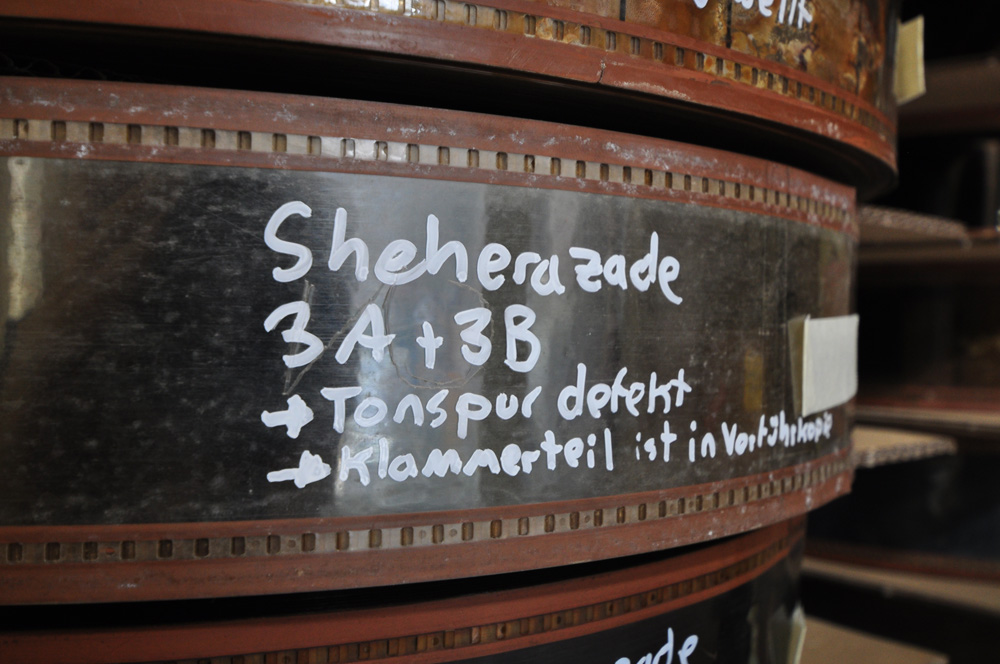 Sheherazade
3A + 3B
→ Tonspur defekt
→ Klammerteil ist in Vorführkopie